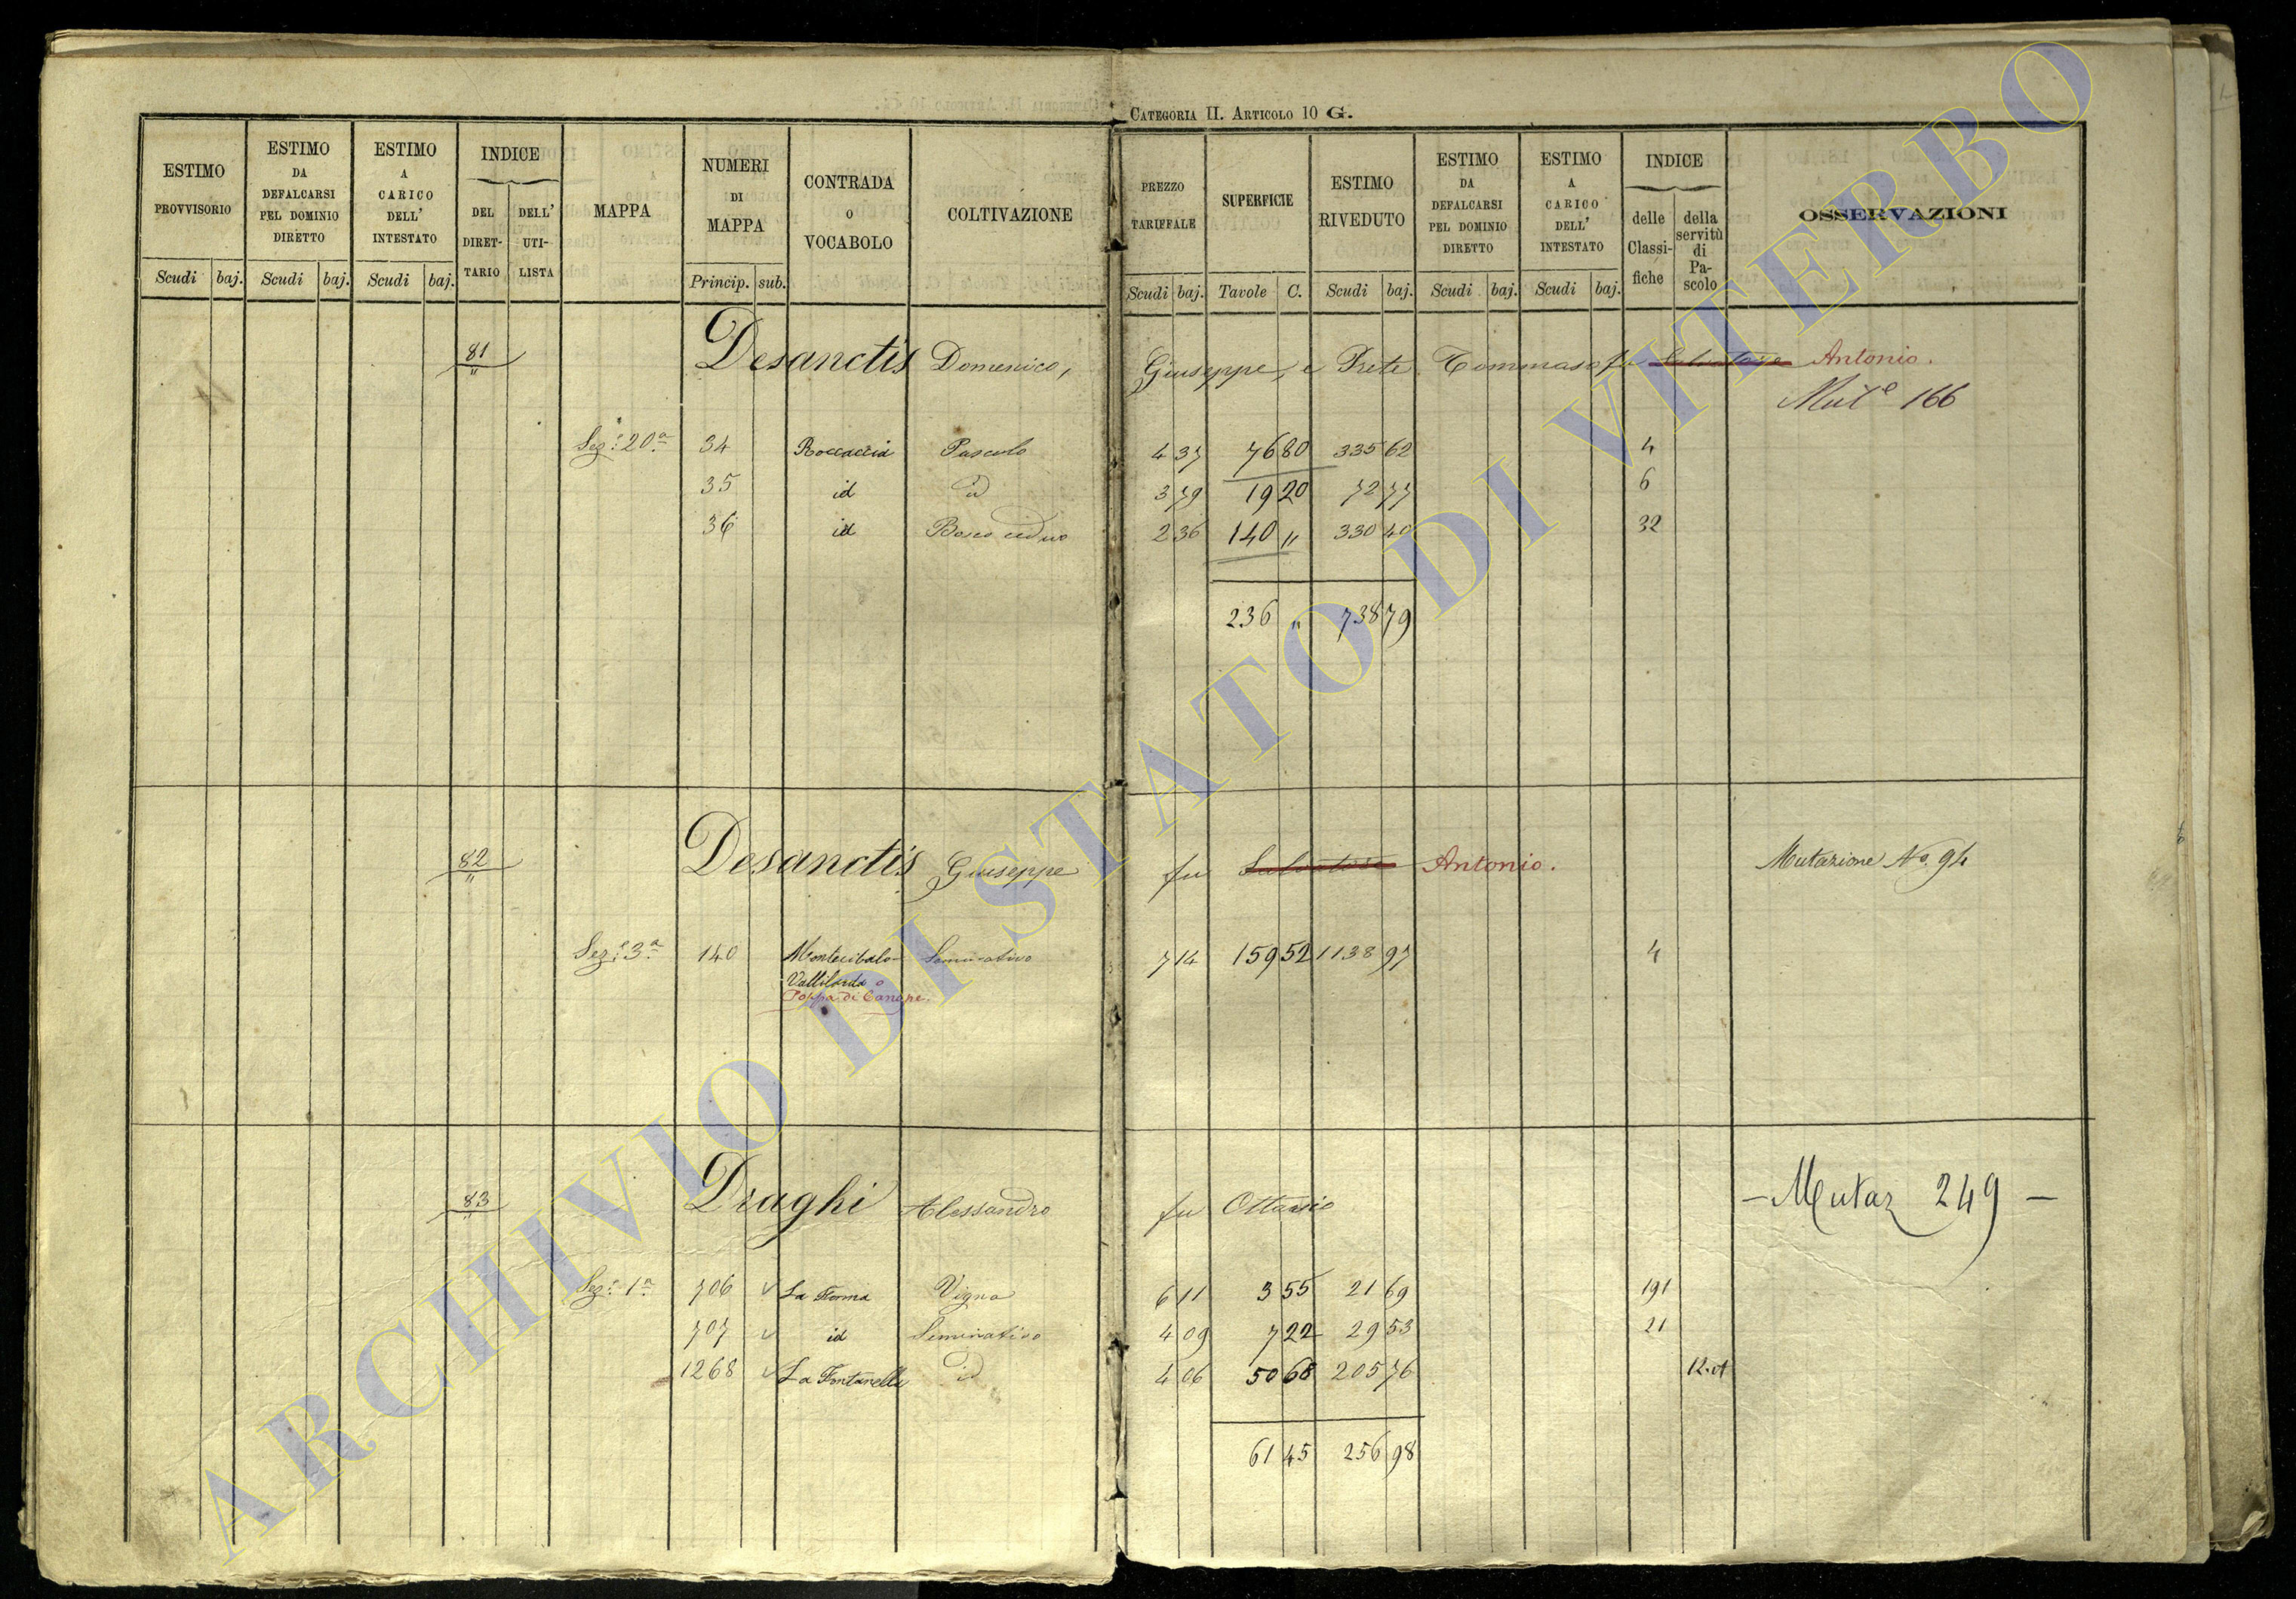 CATEGORIA II. ARTICOLO 10 G.
ESTIMO PROVVISORIO
ESTIMO DA DEFALCARSI PEL DOMINIO DIRETTO
ESTIMO A CARICO DELL' INTESTATO
INDICE
DEL DIRET-TARIO
DELL' UTI-LISTA
MAPPA
NUMERI DI MAPPA
CONTRADA O VOCABOLO
COLTIVAZIONE
PREZZO TARIFFALE
SUPERFICIE
ESTIMO RIVEDUTO
ESTIMO DA DEFALCARSI PEL DOMINIO DIRETTO
ESTIMO A CARICO DELL' INTESTATO
INDICE
delle Classi-fiche
della servitù di Pa-scolo
OSSERVAZIONI
Scudi baj. Scudi baj. Scudi baj. Princip. sub. Scudi baj. Tavole C. Scudi baj. Scudi baj. Scudi baj.
81 Desanctis Domenico, Giuseppe, e Prete Tommaso fu Salvatore Antonio.
Mut.e 166
Sez.e 20a 34 Roccaccia Pascolo 4 37 76 80 335 62 4
35 id id 3 79 19 20 72 77 6
36 id Bosco ceduo 2 36 140 " 330 40 32
236 " 738 79
82 Desanctis Giuseppe fu Salvatore Antonio. Mutazione No. 94
Sez.e 3a 140 Montecibalo Seminativo 7 14 159 52 1138 97 4
Vallilarda o
Poppa di Canope.
83 Draghi Alessandro fu Ottavio – Mutaz 249 –
Sez.e 1a 706 v La Forma Vigna 6 11 3 55 21 69 191
707 v id Seminativo 4 09 7 22 29 53 21
1268 v La Fontanella id 4 06 50 68 205 76
61 45 256 98
ARCHIVIO DI STATO DI VITERBO